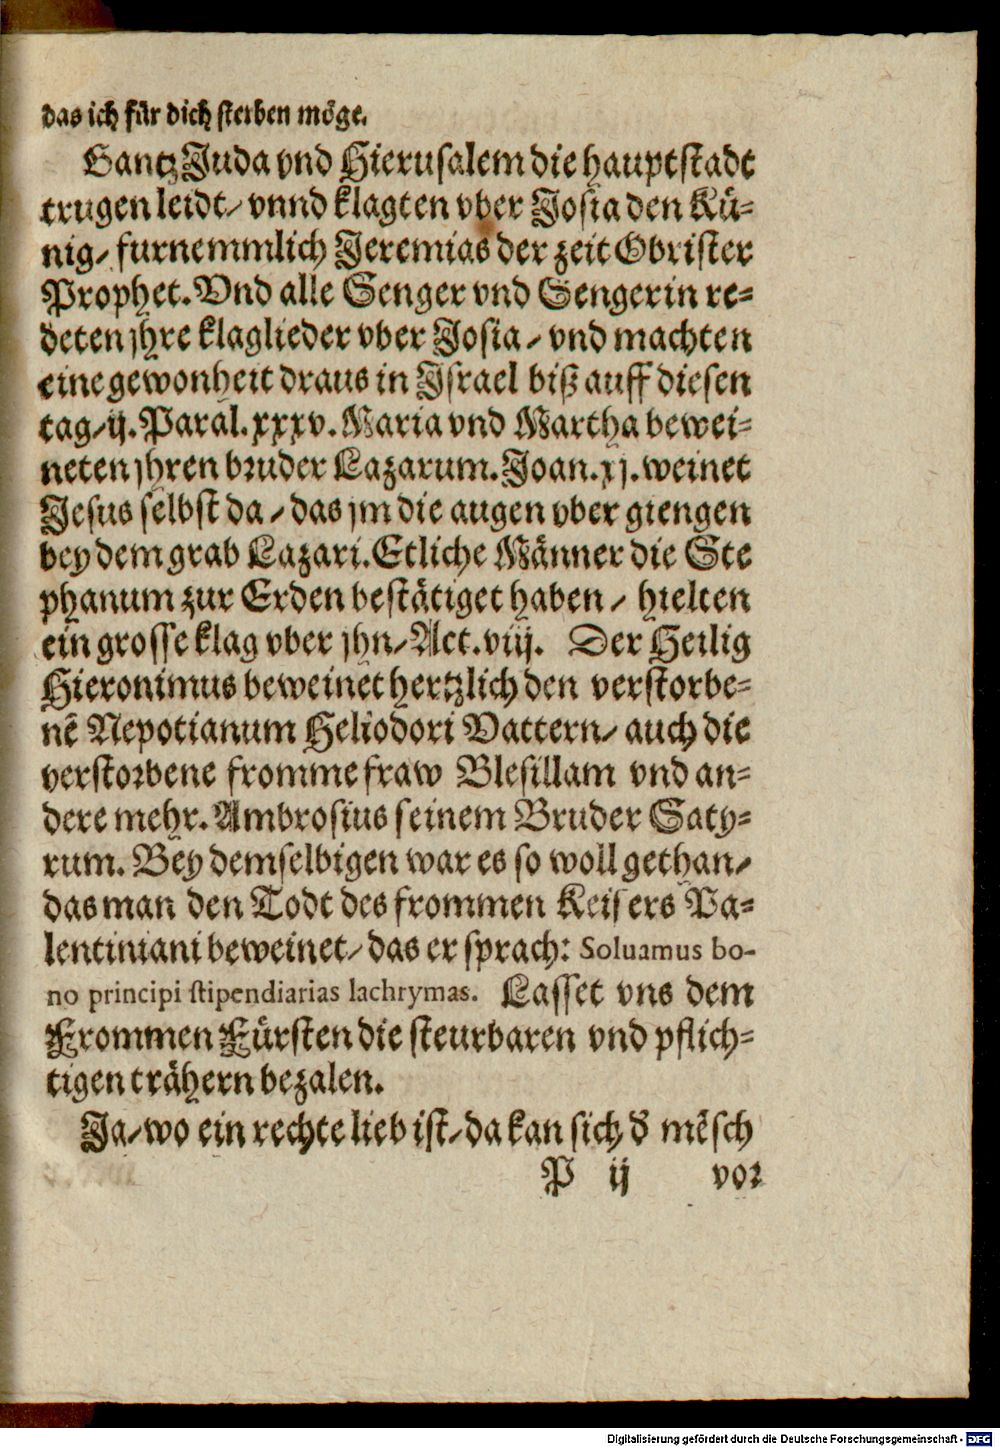 das ich für dich sterben möge.
Gantz Juda vnd Hierusalem die hauptstadt
trugen leidt/ vnnd klagten vber Josia den Kü-
nig/ furnemmlich Jeremias der zeit Obrister
Prophet. Vnd alle Senger vnd Sengerin re-
deten jhre klaglieder vber Josia/ vnd machten
eine gewonheit draus in Israel biß auff diesen
tag/ ij. Paral. xxxv. Maria vnd Martha bewei-
neten jhren bruder Lazarum. Joan. xj. weinet
Jesus selbst da/ das jm die augen vber giengen
bey dem grab Lazari. Etliche Männer die Ste
phanum zur Erden bestätiget haben/ hielten
ein grosse klag vber jhn/ Act. viij. Der Heilig
Hieronimus beweinet hertzlich den verstorbe-
nē Nepotianum Heliodori Vattern/ auch die
verstorbene fromme fraw Blesillam vnd an-
dere mehr. Ambrosius seinem Bruder Saty-
rum. Bey demselbigen war es so woll gethan/
das man den Todt des frommen Keisers Va-
lentiniani beweinet/ das er sprach: Soluamus bo-
no principi stipendiarias lachrymas. Lasset vns dem
Frommen Fürsten die steurbaren vnd pflich-
tigen trähern bezalen.
Ja/ wo ein rechte lieb ist/ da kan sich d' mēsch
P ij vor
Digitalisierung gefördert durch die Deutsche Forschungsgemeinschaft - DFG